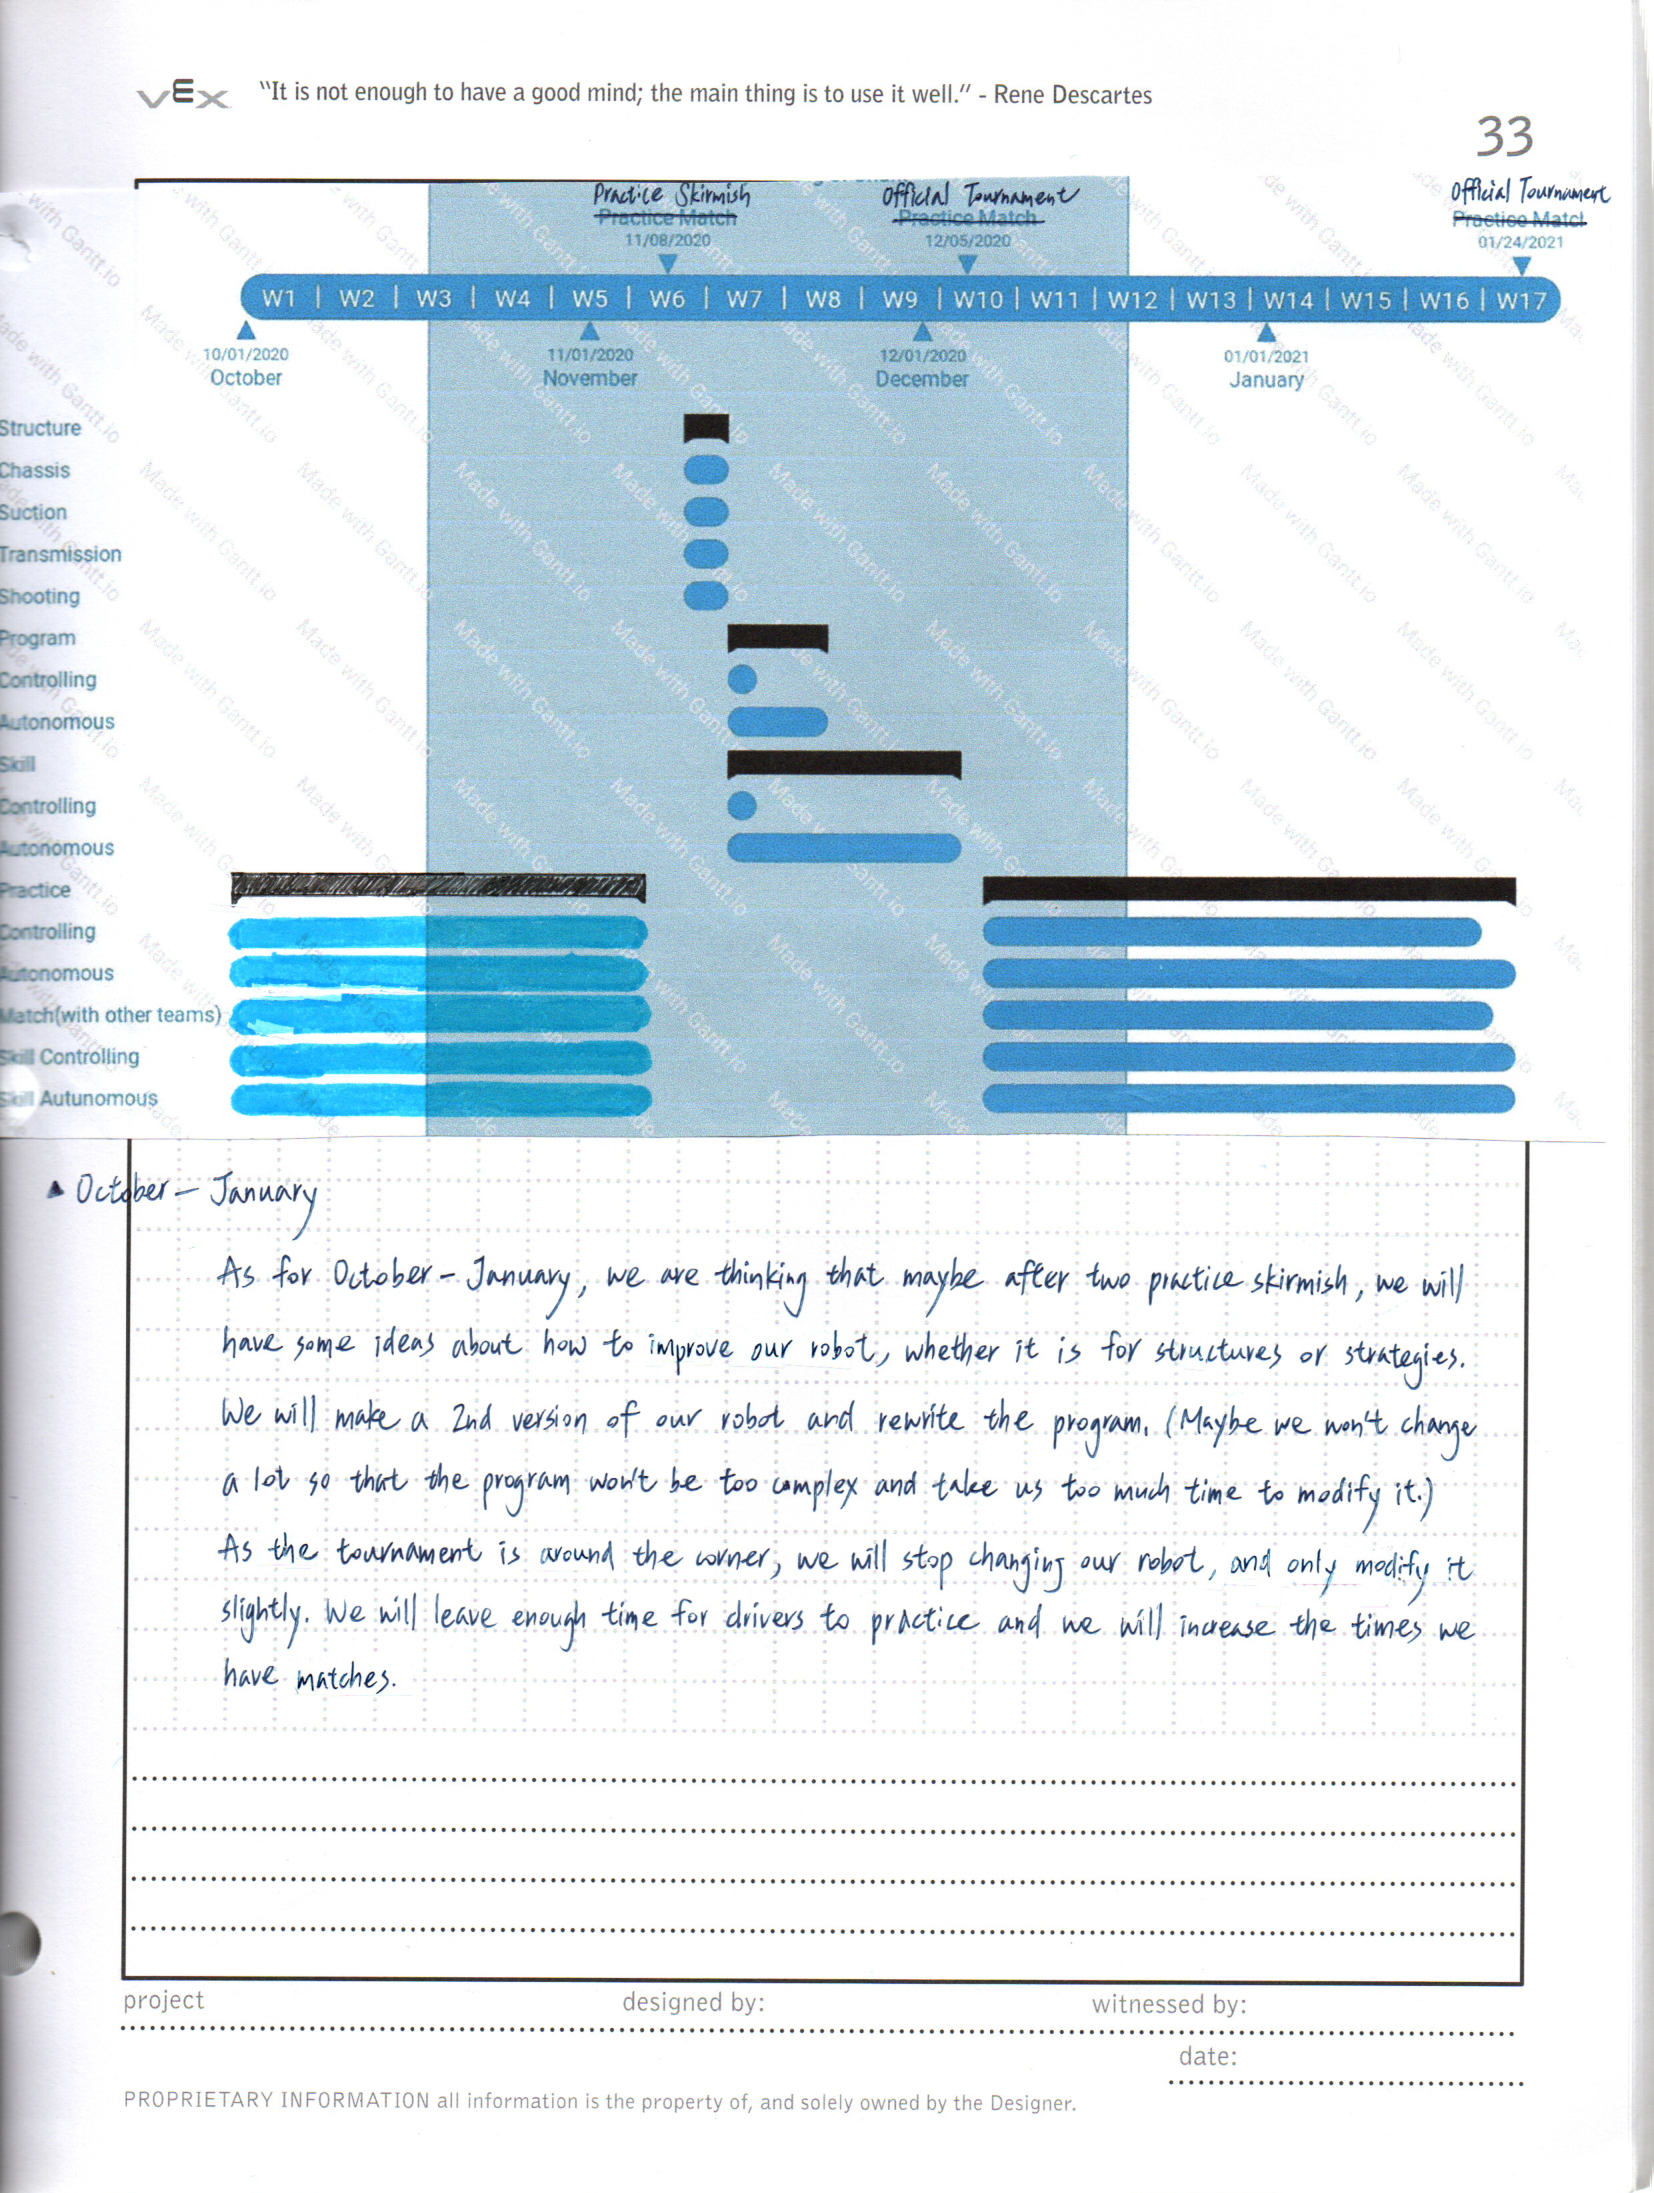 vEx "It is not enough to have a good mind; the main thing is to use it well." - Rene Descartes
33
Practice Skirmish Official Tournament Official Tournament
Practice Match Practice Match Practice Matcl
11/08/2020 12/05/2020 01/24/2021
W1 | W2 | W3 | W4 | W5 | W6 | W7 | W8 | W9 | W10 | W11 | W12 | W13 | W14 | W15 | W16 | W17
10/01/2020 11/01/2020 12/01/2020 01/01/2021
October November December January
Structure
Chassis
Suction
Transmission
Shooting
Program
Controlling
Autonomous
Skill
Controlling
Autonomous
Practice
Controlling
Autonomous
Match(with other teams)
Skill Controlling
Skill Autunomous
Made with Gantt.io
▲ October - January
As for October - January, we are thinking that maybe after two practice skirmish, we will
have some ideas about how to improve our robot, whether it is for structures or strategies.
We will make a 2nd version of our robot and rewrite the program. (Maybe we won't change
a lot so that the program won't be too complex and take us too much time to modify it.)
As the tournament is around the corner, we will stop changing our robot, and only modify it
slightly. We will leave enough time for drivers to practice and we will increase the times we
have matches.
project designed by: witnessed by:
date:
PROPRIETARY INFORMATION all information is the property of, and solely owned by the Designer.